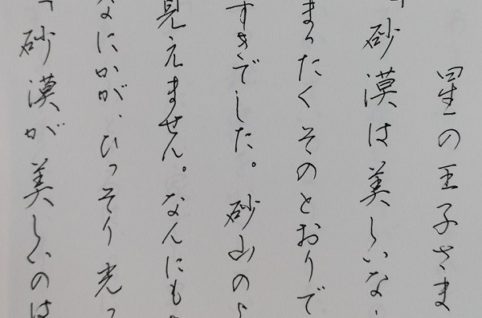 星の王子さま
「砂漠は美しいな
まったくそのとおりで
すきでした。砂山の
見えません。なんにも
なにかが、ひっそり光っ
「砂漠が美しいのは